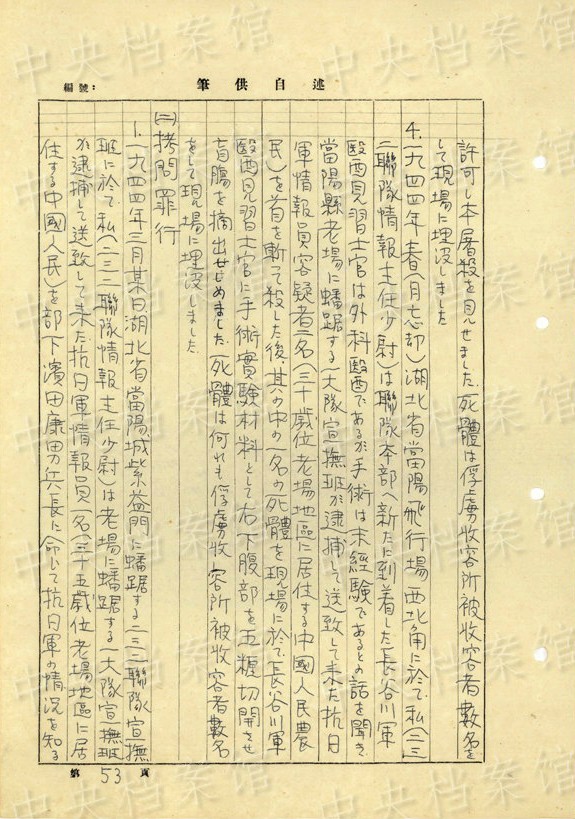 中央档案馆
編號：
筆供自述
許可し本屠殺を見せました、死體は俘虜收容所被收容者數名を
して現場に埋没しました
4.一九四四年春(月忘却)湖北省當陽飛行場西北角に於て私(二三
二聯隊情報主任少尉)は聯隊本部へ新たに到着した長谷川軍
醫西見習士官は外科醫西であるが手術は未経験であるとの話を聞き
當陽縣老場に蟠踞する一大隊宣撫班が逮捕して送致して来た抗日
軍情報員容疑者二名(三十歳位老場地區に居住する中國人民農
民)を首を斬って殺した後、其の中の一名の死體を現場に於て長谷川軍
醫西見習士官に手術實験材料として右下腹部を五糎切開させ
盲腸を摘出せしめました、死體は何れも俘虜收容所被收容者數名
をして現場に埋没しました
(二)拷問罪行
1.一九四四年三月某日湖北省當陽城紫盆門に蟠踞する二三二聯隊宣撫
班に於て私(二三二聯隊情報主任少尉)は老場に蟠踞する一大隊宣撫班
が逮捕して送致して来た抗日軍情報員一名(三十五歳位老場地區に居
住する中國人民)を部下濱田康男兵長に命じて抗日軍の情況を知る
第53頁